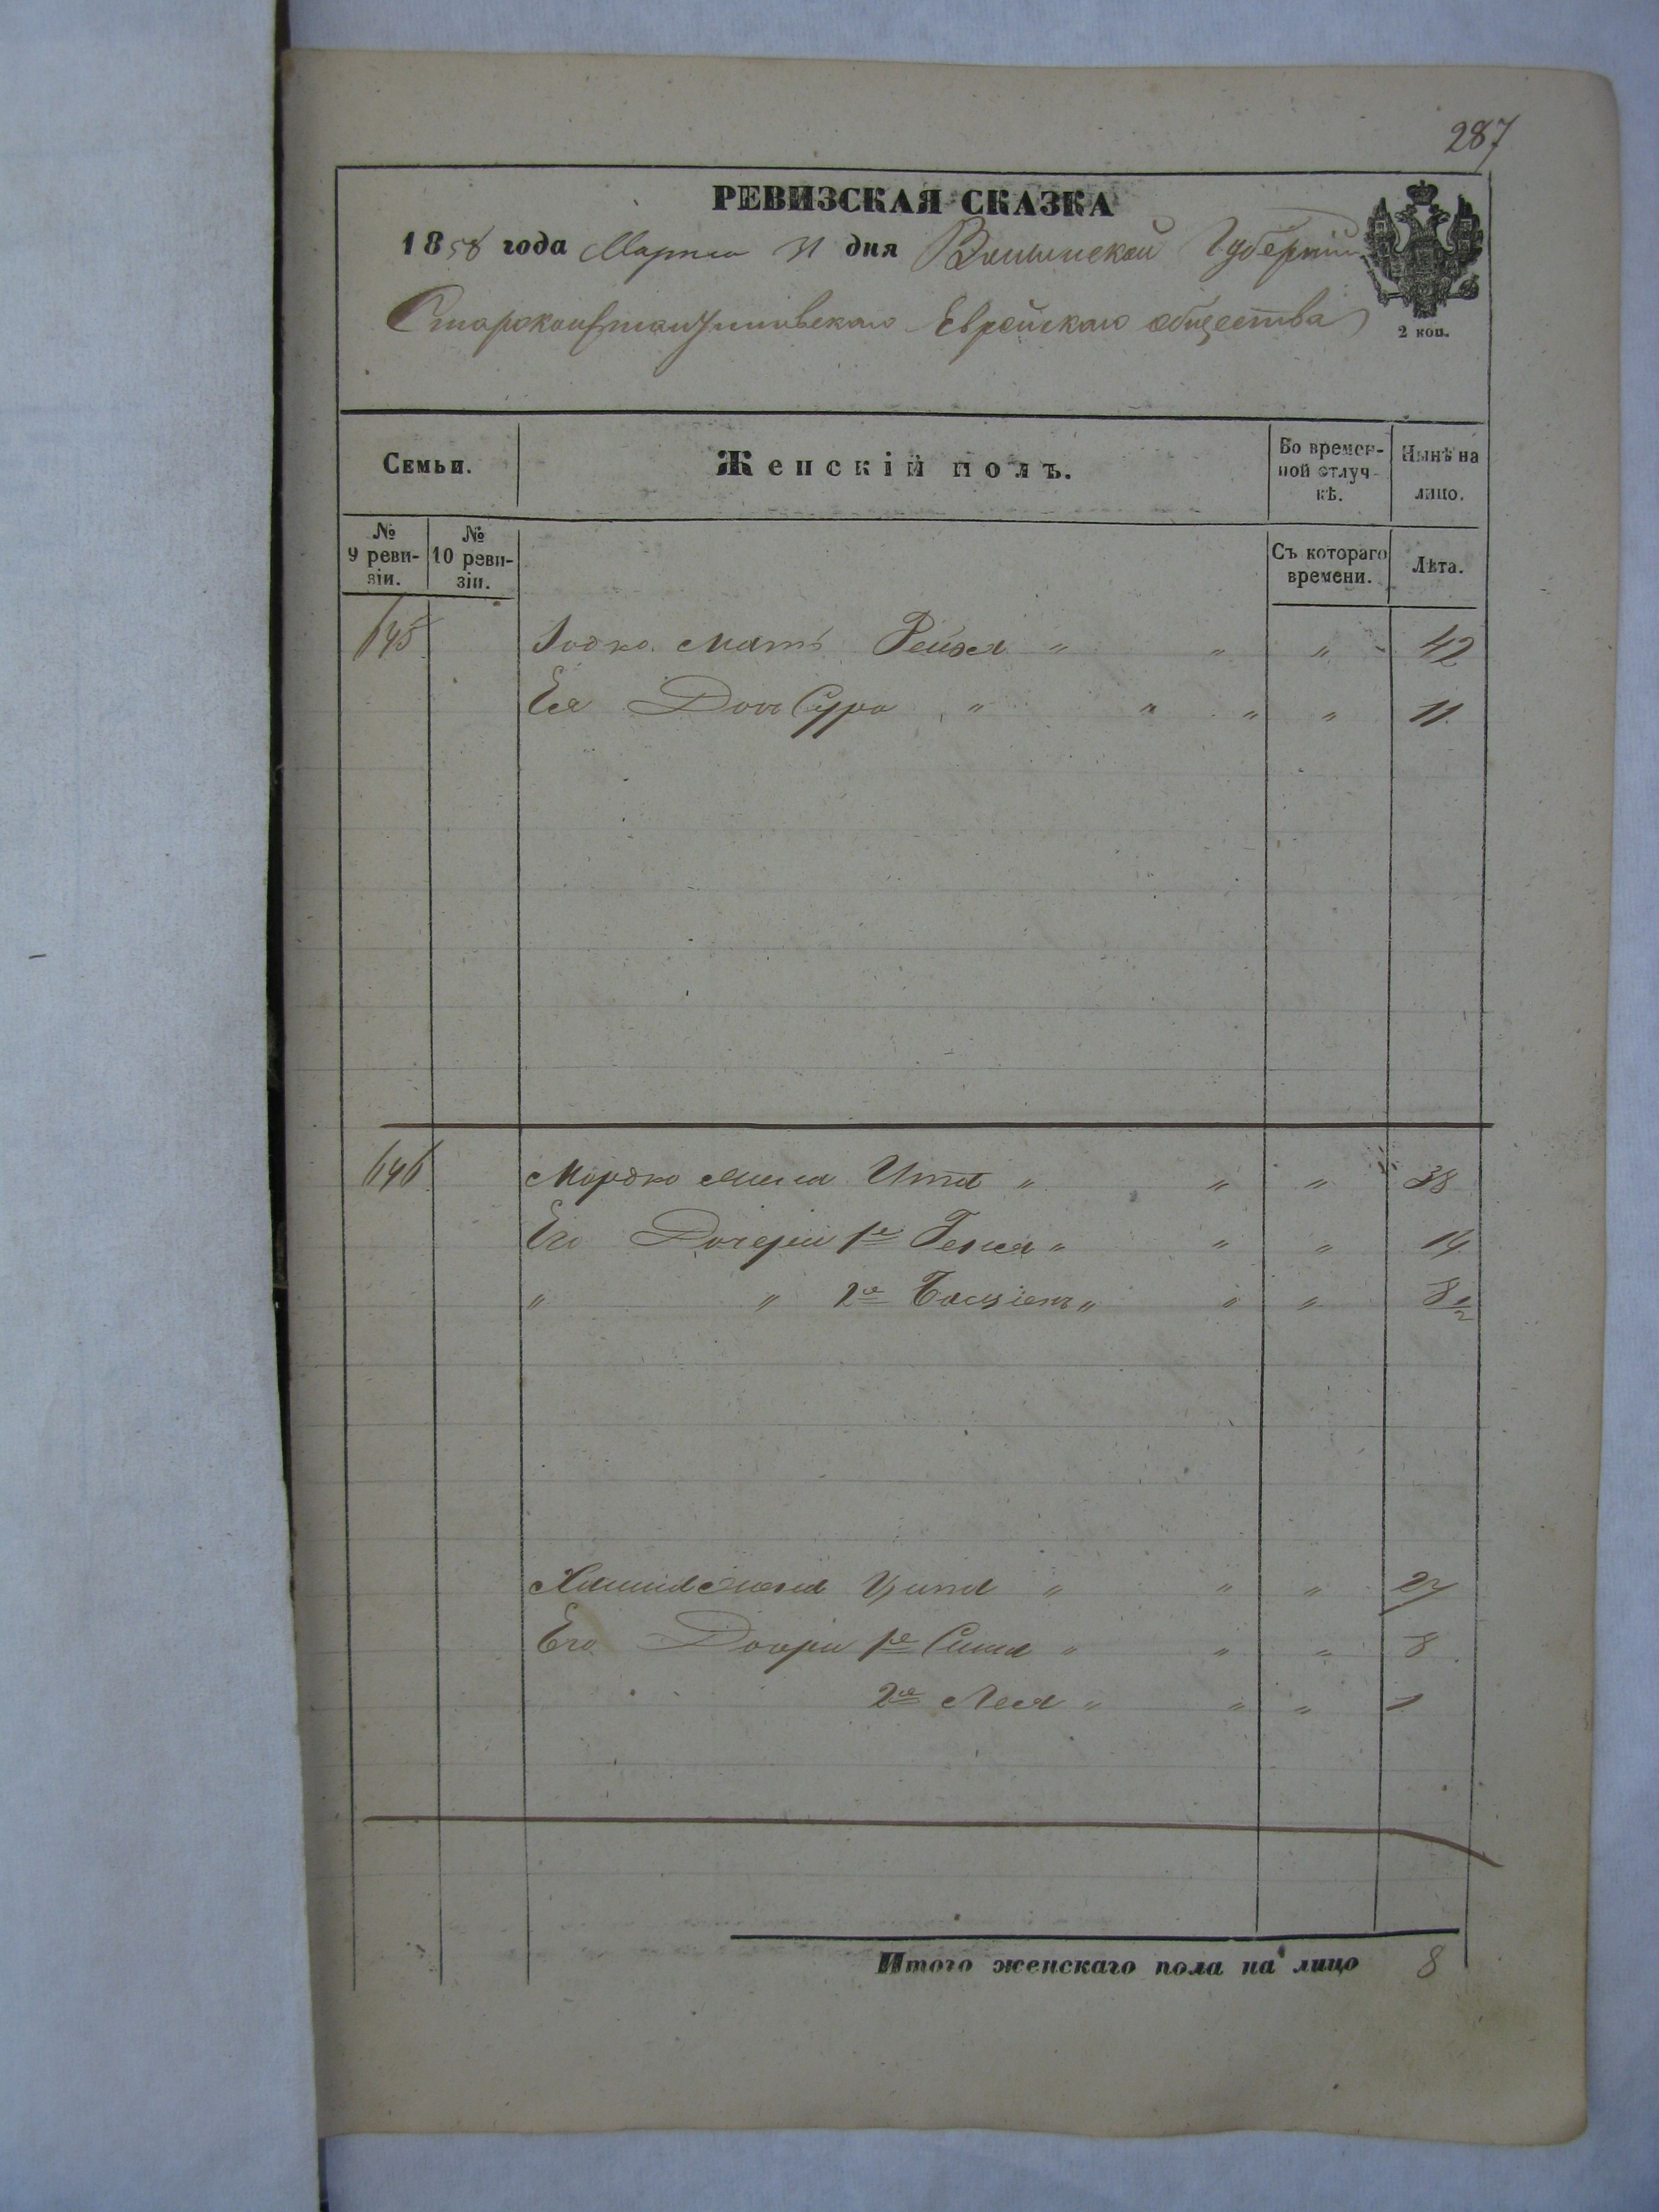 287
РЕВИЗСКАЯ СКАЗКА
1858 года Марта 31 дня Волынской Губернии
Староконстантиновскаго Еврейскаго общества
2 коп.
Семьи.
Женскій полъ.
Во времен-
ной отлуч-
кѣ.
Нынѣ на
лицо.
№
9 реви-
зіи.
№
10 реви-
зіи.
Съ котораго
времени.
Лѣта.
645 мать Рейзя " " " 42
Ея Дочь Сура " " " " 11
646 Мордко жена Ита " " " 38
Его Дочери 1я Геня " " " 14
" " 2я " " " 8 1/2
жена " " " 27
Его Дочери 1я Сима " " " 8
2я Лея " " " 1
Итого женскаго пола на лицо 8